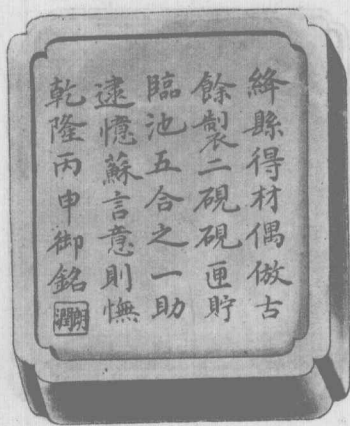 絳縣得材偶倣古
餘製二硯硯匣貯
臨池五合之一助
逮憶蘇言意則憮
乾隆丙申御銘
朗潤